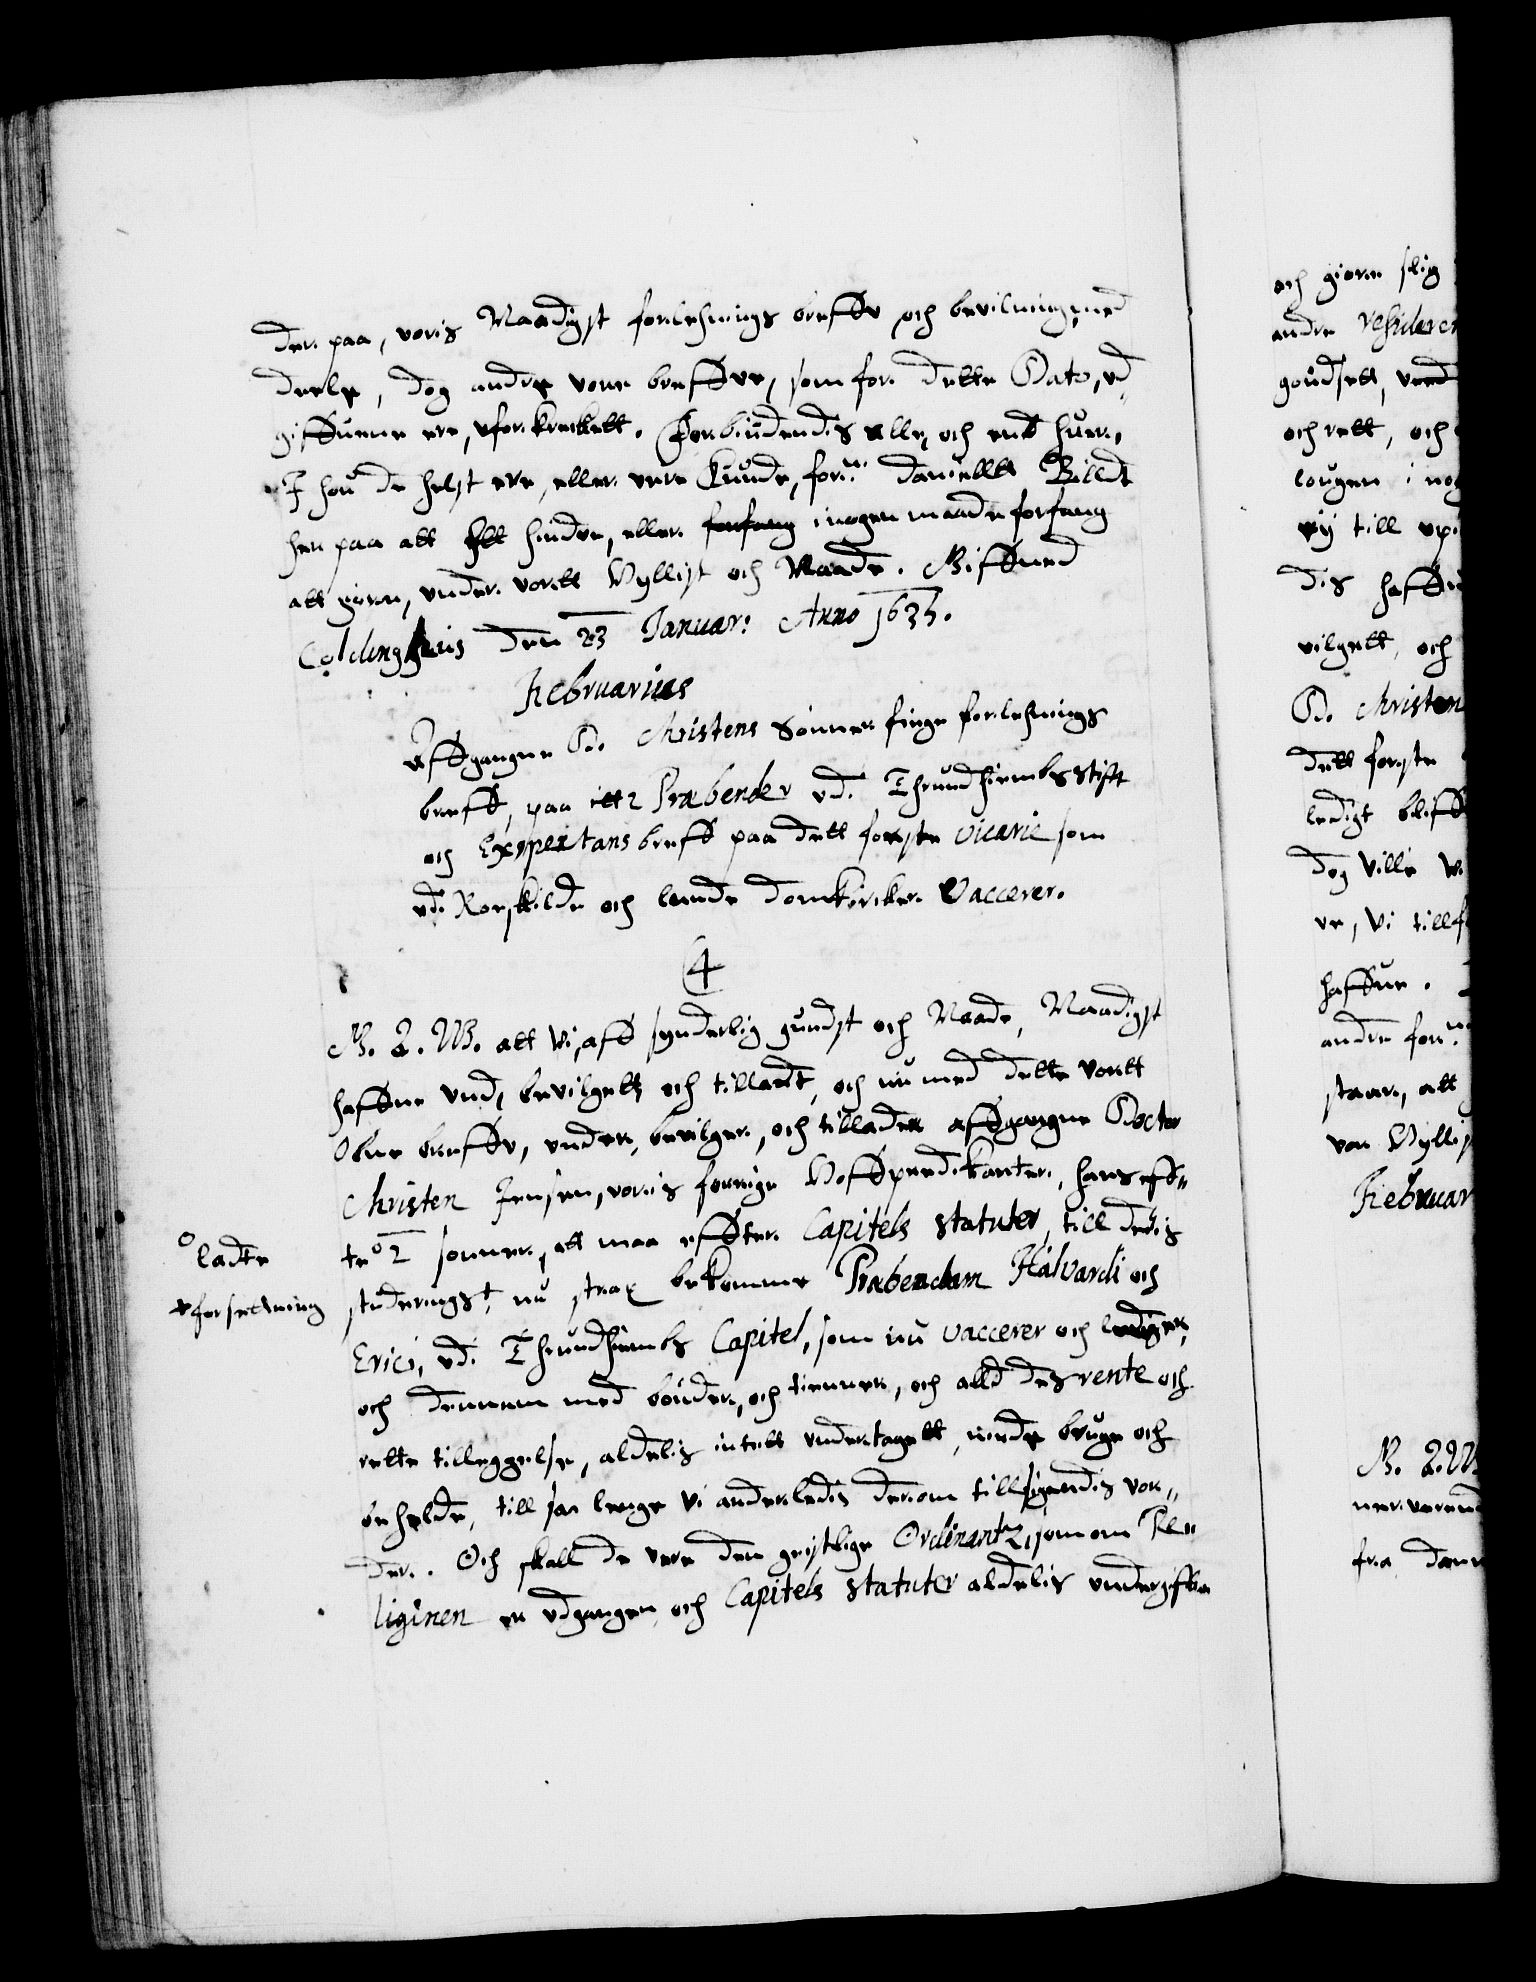 der paa, voris Naadigst forlehnings breffv och bevilning, med
deele, dog andre vore breffve, som for dette Dato, ud
giffuene ere, uforkrenckett. Forbiudendis alle, och enb huer,
I hou de helst ere, eller vere kunde, forn: daniellt Billdt
her paa att hindre, eller forfang i nogen maade forfang
att giøre, under vortt Hyllist och Naade. Giffued
Coldinghuus den 23 Januar: Anno 1635.
Februarius
Affgangne D. Christens Sønner finge forlehnings
breff, paa itt2 Præbender udi Thrundhiembs Stift
och Expextans breff paa dett første Vicarie som
udi Roeskilde och Lunde domkircker Vaccerer.
4
G. A. W. att Wi, aff synderlig gundst och Naade, Naadigst
haffue Und, bevilgett och tilladt, och nu med dette vortt
Obne breffv, under, bevilger, och tillader affgangne Doctor
Christen Jensen, voris forrige Hoffpredikanter, hans eff-
te° 2 sønner, att maa effter Capitels statuter, till deris
studerings+ nu strax bekomme Præbendam Halvardi och
Erici, udi Thrundhiembs Capitel, som nu vaccerer och ledig er,
och dennem med bønder, och tienner, och alld des rente och
rette tilleggelse, aldelis intett undertagett, niude bruge och
beholde, till saa lenge Vi anderledis derom tillsigendis vor-
der. Och skall de vere den geistlige Ordinantz, som om Re-
liginen er udgangen, och Capitels statuter aldelis undergiffen
° ladte
+ forsetning
och giøre slig
andre residerer
goudsett, ved
och rett, och
lougen i nog
vij till
dis haffu
vilgett, och
D. Christen
dett første
ledigt bliff
dog Ville Wi
ve, Vi till
haffue.
andre forn:
staar, att
vor Hyllis
Februar
G. A. W.
ner verend
fra dan